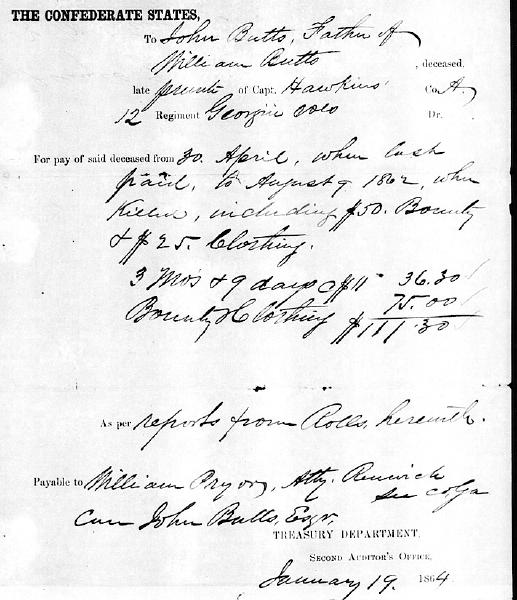 THE CONFEDERATE STATES,
To John Butts, Father of
William Butts , deceased,
late private of Capt. Hawkins' Co. A,
12 Regiment Georgia vols Dr.
For pay of said deceased from 30. April, when last
paid, to August 9 1862, when
Killed, including $50. Bounty
& $25. Clothing.
3 Mo's & 9 days @ $11 36.30
Bounty & Clothing 75.00
$111.30
As per reports from Rolls, herewith.
Payable to William Pryor, Atty.
John Butts, Esqr,
TREASURY DEPARTMENT,
SECOND AUDITOR'S OFFICE,
January 19. 1864